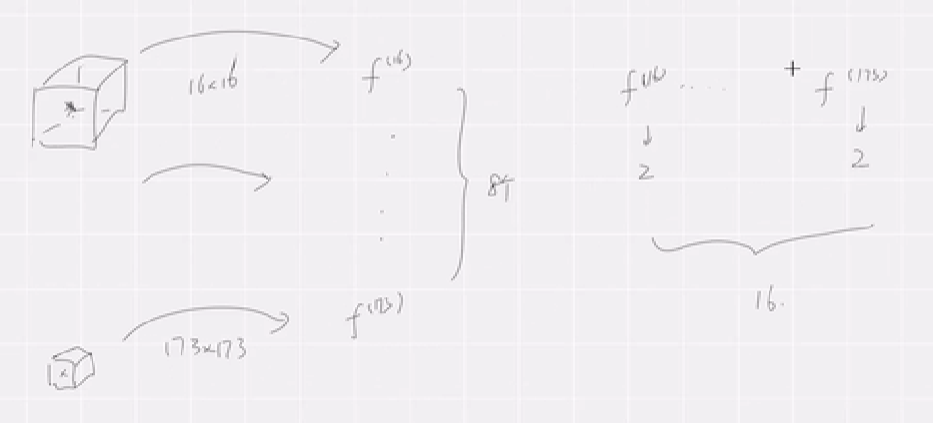 16×16
f⁽¹⁶⁾
8个
173×173
f⁽¹⁷³⁾
f⁽¹⁶⁾ ..... f⁽¹⁷³⁾
↓ ↓
2 2
16.